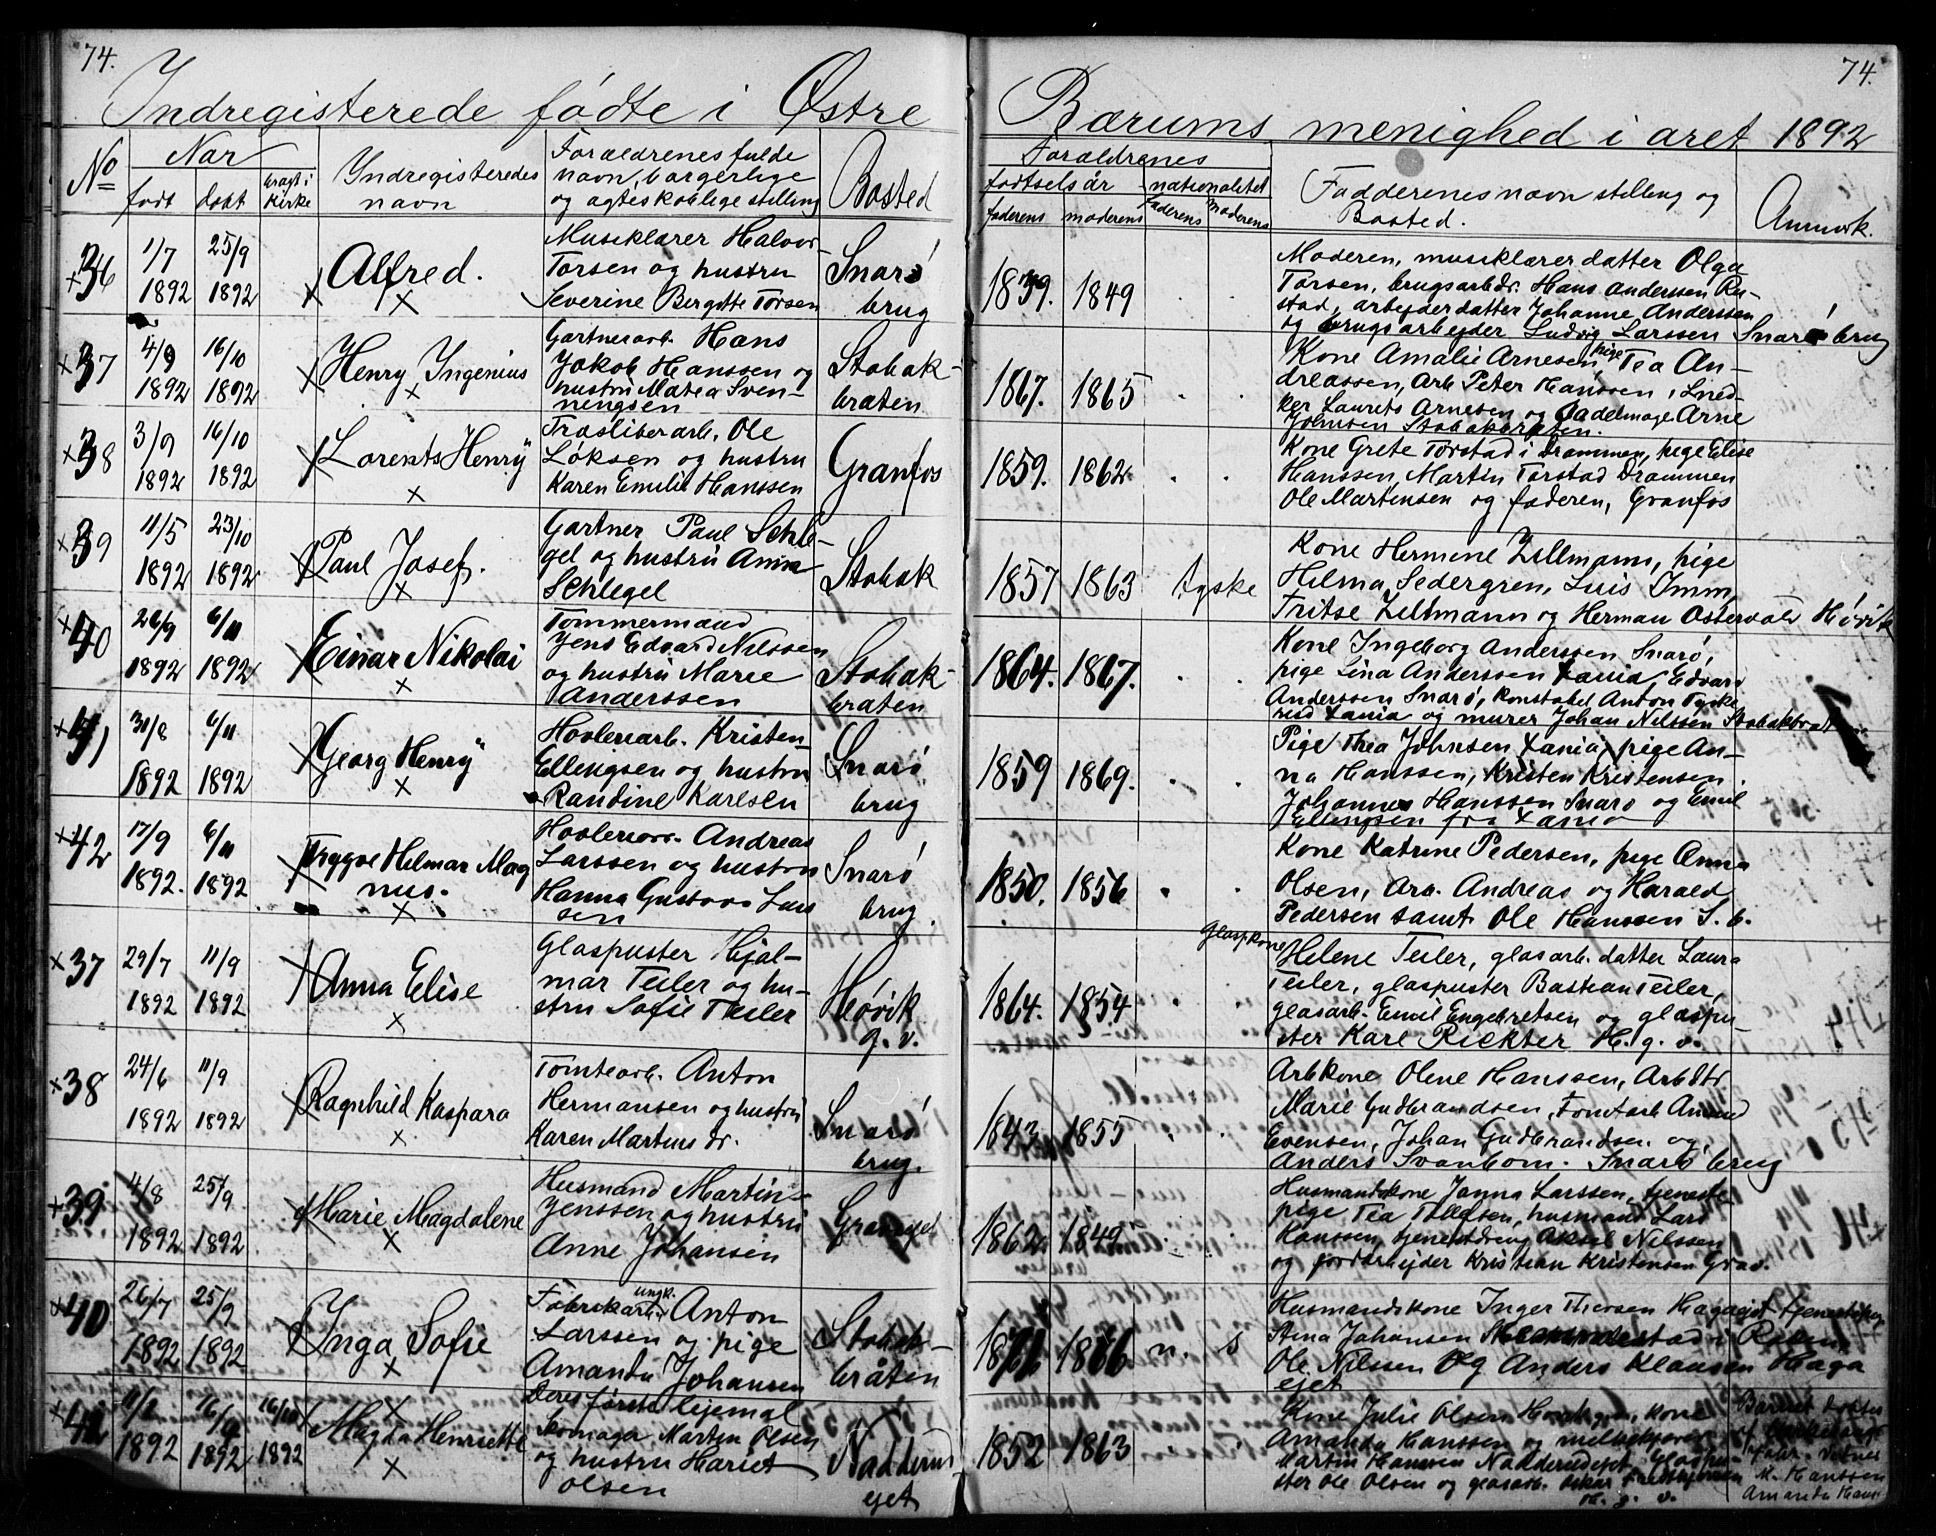 74.
74.
Indregisterede fødte i Østre
Bærums menighed i aret 1892
No
Nar
født
døbt
bragt i kirke
Indregisteredes navn
Forældrenes fulde
navn, borgerlige
og ægteskablige stilling
Bosted
Forældrenes
fødtselsår
faderens
moderens
nationalitet
faderens
moderens
Fadderenes navn stilling og
Bosted.
Anmærk.
36
1/7 1892
25/9 1892
Alfred.
Musiklærer Halvor
Torsen og hustru
Severine Bergitte Torsen
Snarø
brug
1839.
1849
Moderen, musiklærer datter Olga
Torsen, brugsarbdr. Hans Anderssen Ru-
stad, arbejderdatter Johanne Anderssen
og brugsarbejder Ludvig Larssen Snarø brug
37
4/9 1892
16/10 1892
Henry Ingenius
Gartnerarb. Hans
Jakob Hanssen og
hustru Matea Sven-
nengsen
Stabæk-
braten
1867.
1865
Kone Amalie Arnesen, pige Tea An-
dreassen, Arb. Peter Hanssen, Sned-
ker Laurits Arnesen og Sadelmager Arne
Johnsen Stabækbraten.
38
3/9 1892
16/10 1892
Lorents Henry
Træsliberarb. Ole
Løksen og hustru
Karen Emilie Hanssen
Granfos
1859.
1862
Kone Grete Torstad i Drammen, pige Elise
Hanssen, Martin Torstad Drammen
Ole Martensen og faderen, Granfos
39
11/5 1892
23/10 1892
Paul Josef.
Gartner Paul Schle-
gel og hustru Anna
Schlegel
Stabæk
1857
1863
tyske
Kone Hermine Zillmann, pige
Helma Sedergren, Luis Imm,
Fritse Zillmann og Herman Ostervald Høvik
40
26/9 1892
6/11 1892
Einar Nikolai
Tømmermand
Jens Edvard Nilssen
og hustru Marie
Anderssen
Stabæk-
bråten
1864.
1867.
Kone Ingeborg Anderssen Snarø,
pige Lina Anderssen Xania, Edvard
Anderssen Snarø, konstabel Anton Tyske
rud Xania og murer Johan Nilssen Stabækbrat
41
30/8 1892
6/11 1892
Georg Henry
Høvleriarb. Kristen
Ellingsen og hustru
Randine Karlsen
Snarø
brug
1859
1869.
Pige Thea Johnsen Xania, pige An-
na Hanssen, Kristen Kristensen
Johannes Hanssen Snarø og Emil
Ellingsen fra Xania
42
17/9 1892.
6/11 1892
Tryggve Helmar Mag
nus.
Høvleriarb. Andreas
Larssen og hustru
Hanna Gustava Lars
sen
Snarø
brug.
1850.
1856
Kone Katrine Pedersen, pige Anna
Olsen, Arb. Andreas og Harald
Pedersen samt Ole Hanssen S. b.
37
29/7 1892
11/9 1892
Anna Elise
Glaspuster Hjal-
mar Teiler og hu-
stru Sofie Teiler
Høvik
g. v.
1864.
1854
Glaspkone
Helene Teiler, glasarb. datter Laura
Teiler, glaspuster Bastian Teiler,
glasarb. Emil Engebretsen og glaspu-
ster Karl Rickter H. g. v.
38
24/6 1892
11/9 1892
Ragnhild Kaspara
Tomtearb. Anton
Hermansen og hustru
Karen Martinsdr.
Snarø
brug.
1843
1855
Arbkone Oline Hanssen, Arbdtr
Marie Gudbrandsen, Tomtarb
Evensen, Johan Gudbrandsen og
Anders Svanbom. Snarø brug
39
4/8 1892
25/9 1892
Marie Magdalene
Husmand Martin
Jenssen og hustru
Anne Johansen
1862
1849
Husmandskone Janna Larssen, tjeneste
pige Tea Tollefsen, husmand Lars
Hanssen, tjenestdreng Aksel Nilssen
og jordarbejder Kristian Kristensen Grav.
40
26/7 1892
25/9 1892
Inga Sofie
Fabrikarb. ungk. Anton
Larssen og pige
Amanda Johansen
Deres første lejemal
Stabæk-
bråten
1866
n.
s
Husmandskone Inger Thorsen Hagaejet
Stina Johansen
Ole Nilssen og Anders Klausen Haga
ejet
1892
1892
16/10 1892
Magda Henriette
Skomager Martin Olsen
og hustru Hariet
Olsen
Nadderud
ejet
1852
1863
Kone Julie Olsen
Amanda Hanssen og melkekjører
Martin Hanssen Nadderudejet, Glaspu-
ster Ole Olsen og glasarb. Oskar
H. g. v.
M. Hanssen
Amanda Hans